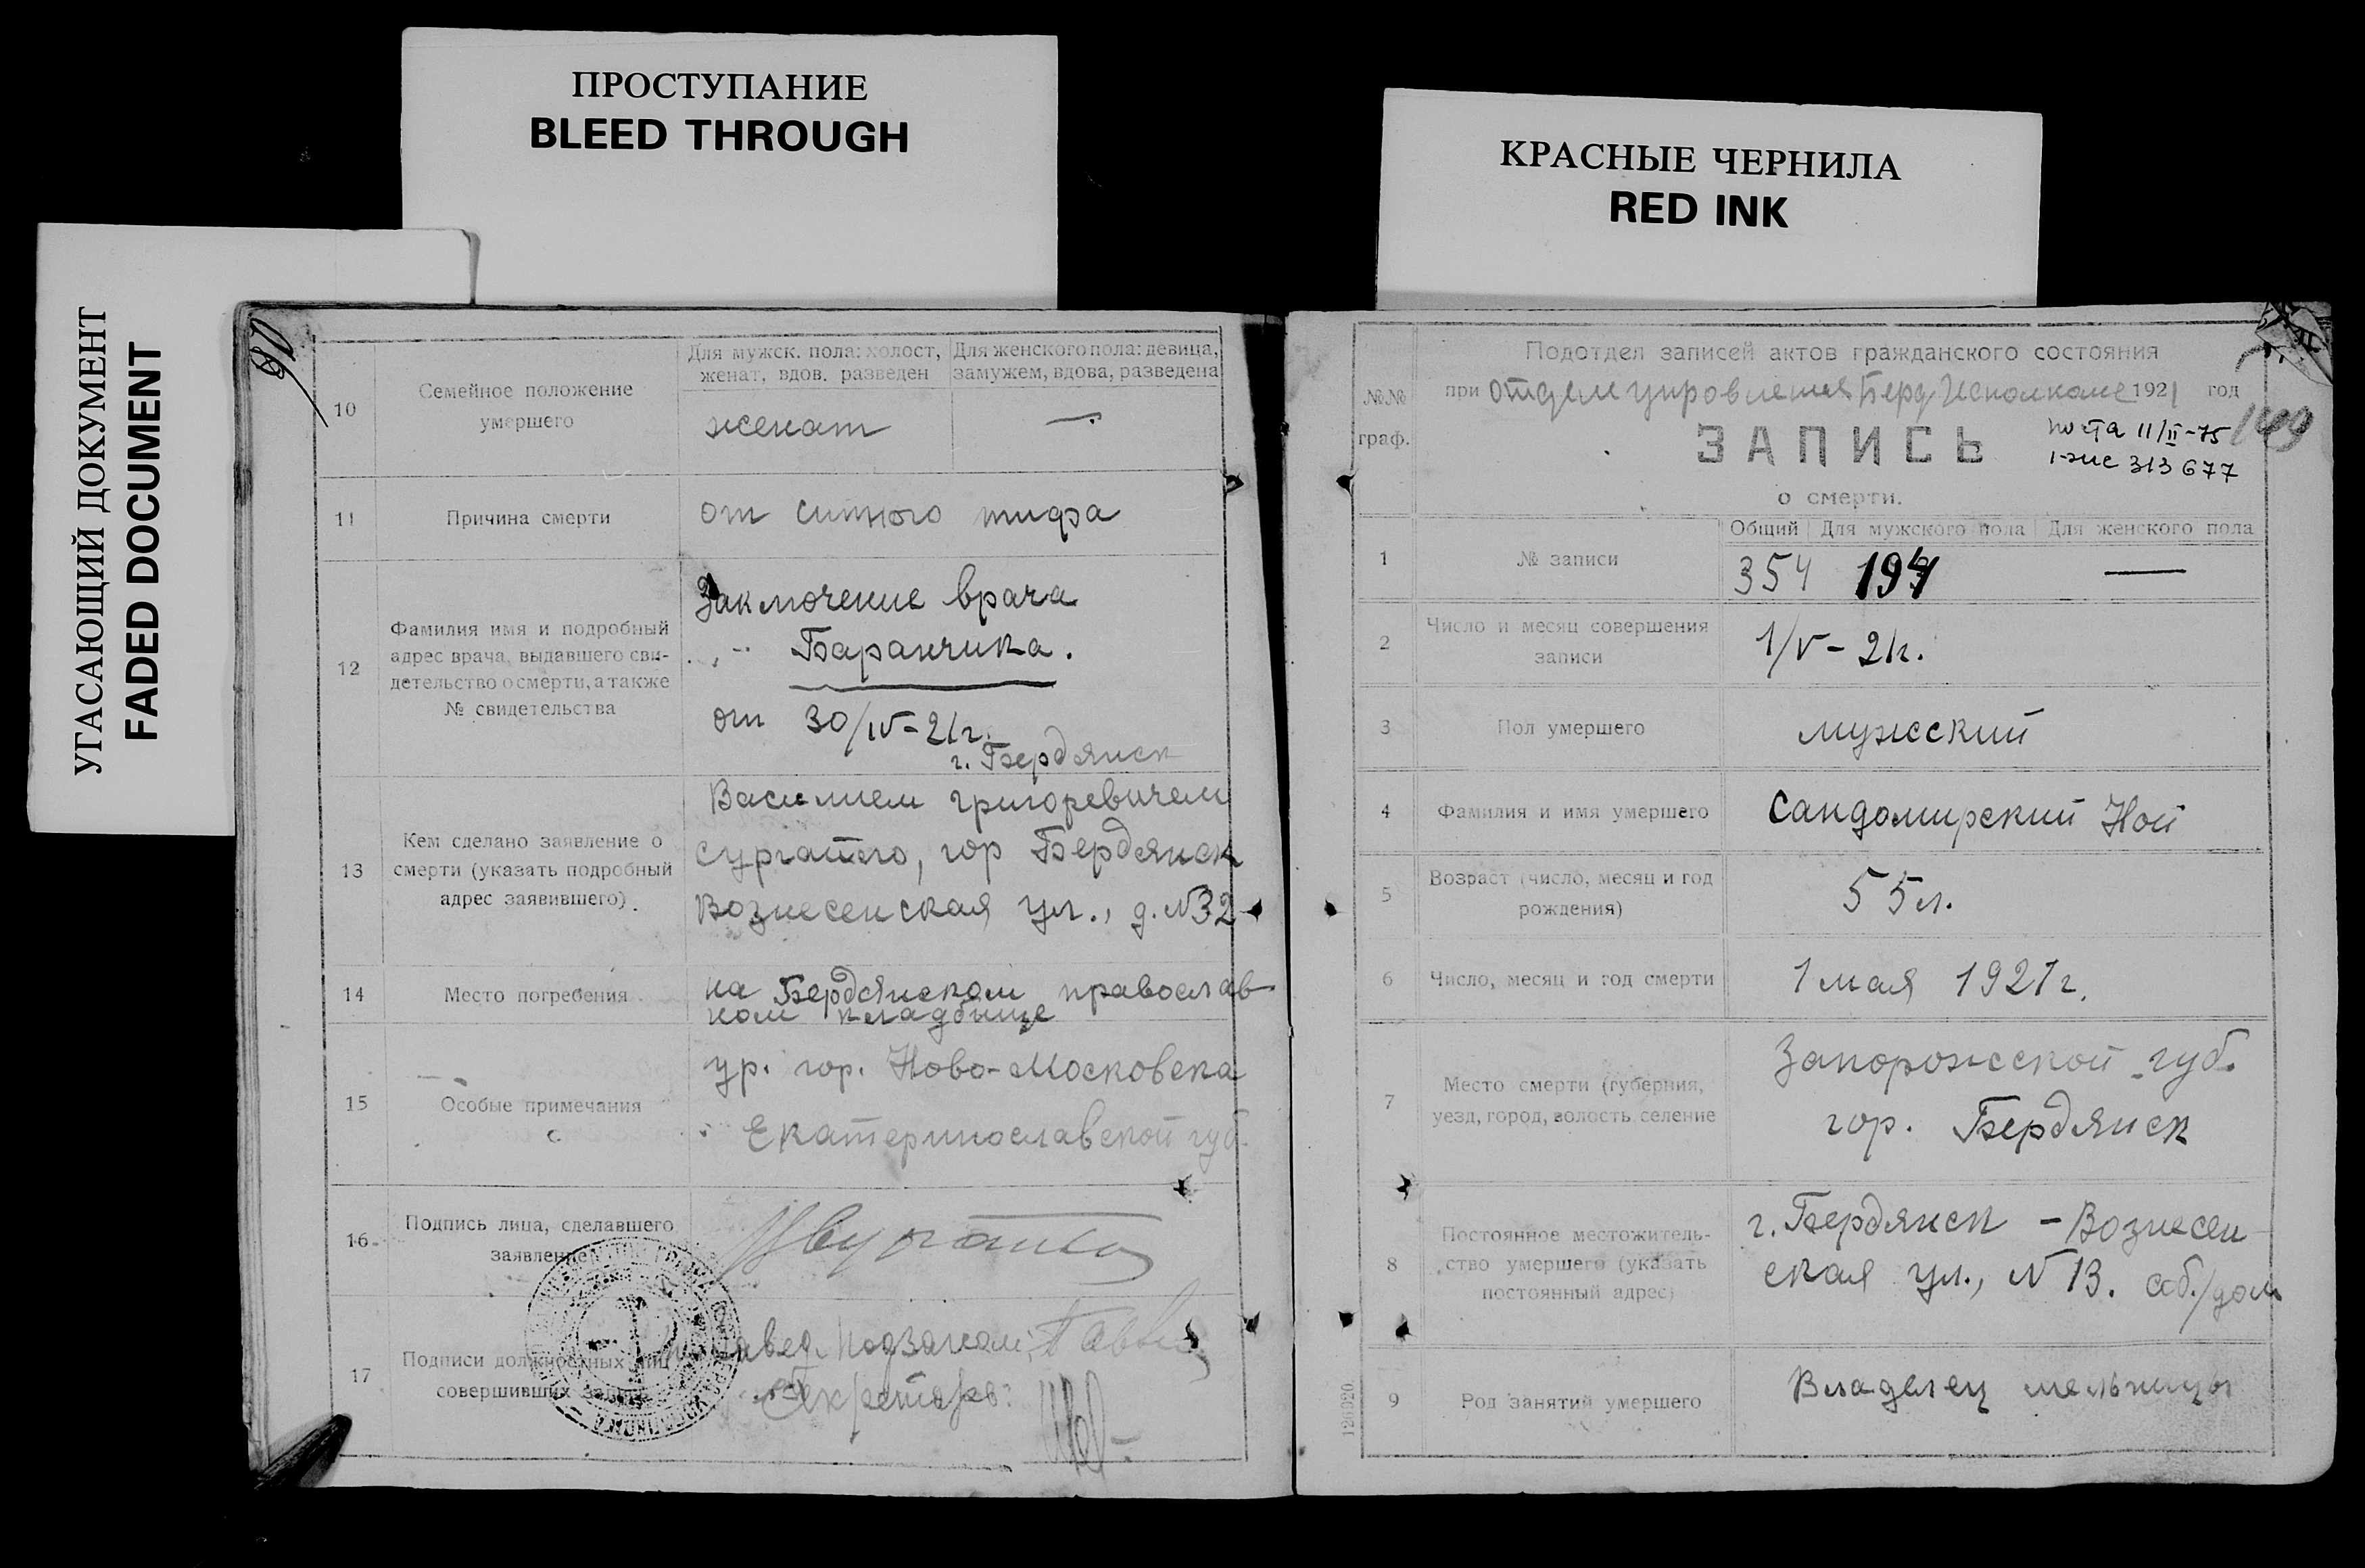 ПРОСТУПАНИЕ
BLEED THROUGH
КРАСНЫЕ ЧЕРНИЛА
RED INK
УГАСАЮЩИЙ ДОКУМЕНТ
FADED DOCUMENT
10
Семейное положение
умершего
Для мужск. пола: холост,
женат, вдов. разведен
Для женского пола: девица,
замужем, вдова, разведена
женат
—
11
Причина смерти
от сыпного тифа
12
Фамилия имя и подробный
адрес врача, выдавшего сви-
детельство о смерти, а также
№ свидетельства
Заключение врача
Баранчика.
от 30/IV-21г.
г. Бердянск
13
Кем сделано заявление о
смерти (указать подробный
адрес заявившего)
Василием Григоревичем
гор Бердянск
Вознесенская ул., д. №32
14
Место погребения
на Бердянском православ
ном кладбище
15
Особые примечания
ур. гор. Ново-Московска
Екатеринославской губ.
16
Подпись лица, сделавшего
заявление
17
Подписи должностных лиц
совершивших запись
Завед. Подзагсом
Секретарь:
№№
граф.
Подотдел записей актов гражданского состояния
при Отделе управления Берд. Исполкоме 1921 год
149
ЗАПИСЬ
11/II-75
313677
о смерти.
1
№ записи
Общий
Для мужского пола
Для женского пола
354
194
—
2
Число и месяц совершения
записи
1/V-21г.
3
Пол умершего
мужский
4
Фамилия и имя умершего
Сандомирский Ной
5
Возраст (число, месяц и год
рождения)
55 л.
6
Число, месяц и год смерти
1 мая 1921 г.
7
Место смерти (губерния,
уезд, город, волость селение
Запорожской губ.
гор. Бердянск
8
Постоянное местожитель-
ство умершего (указать
постоянный адрес)
г. Бердянск - Вознесен
ская ул., №13. соб./дом
9
Род занятий умершего
Владелец мельницы
126920